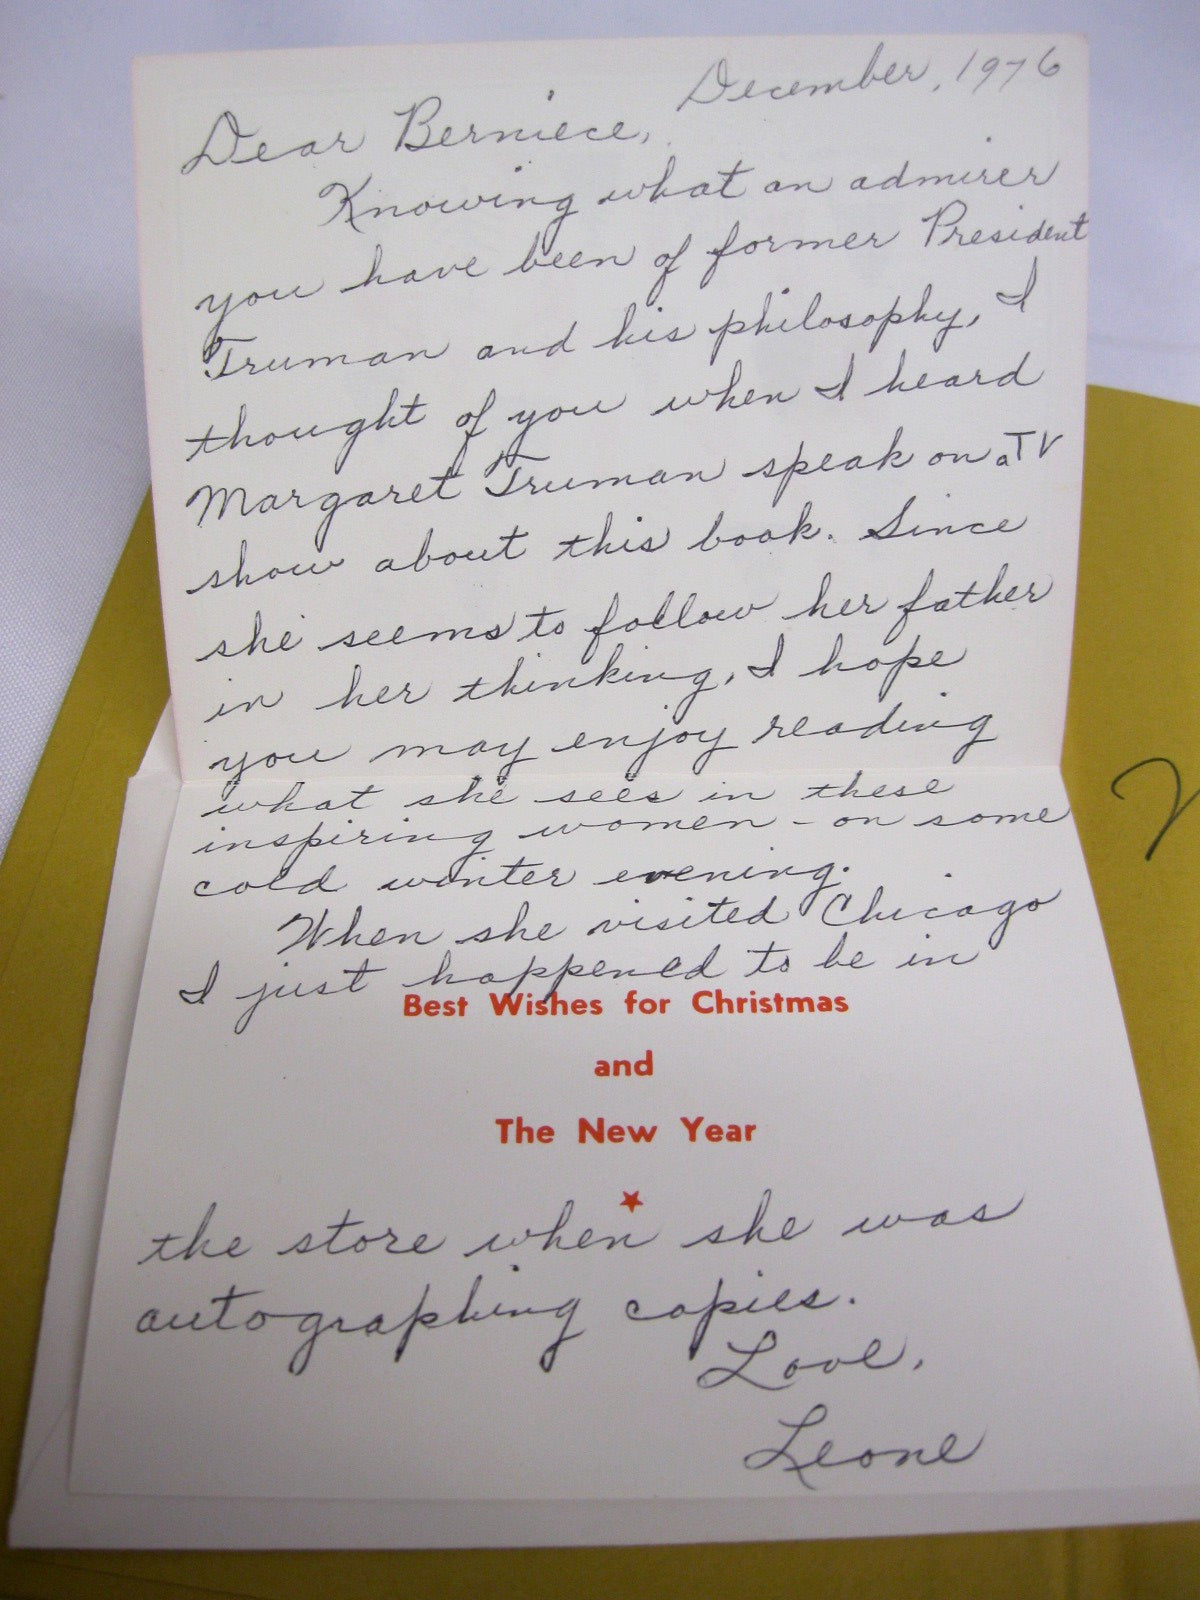 December, 1976
Dear Berniece,
Knowing what an admirer
you have been of former President
Truman and his philosophy, I
thought of you when I heard
Margaret Truman speak on a TV
show about this book. Since
she seems to follow her father
in her thinking, I hope
you may enjoy reading
what she sees in these
inspiring women - on some
cold winter evening.
When she visited Chicago
I just happened to be in
Best Wishes for Christmas
and
The New Year
the store when she was
autographing copies.
Love,
Leone